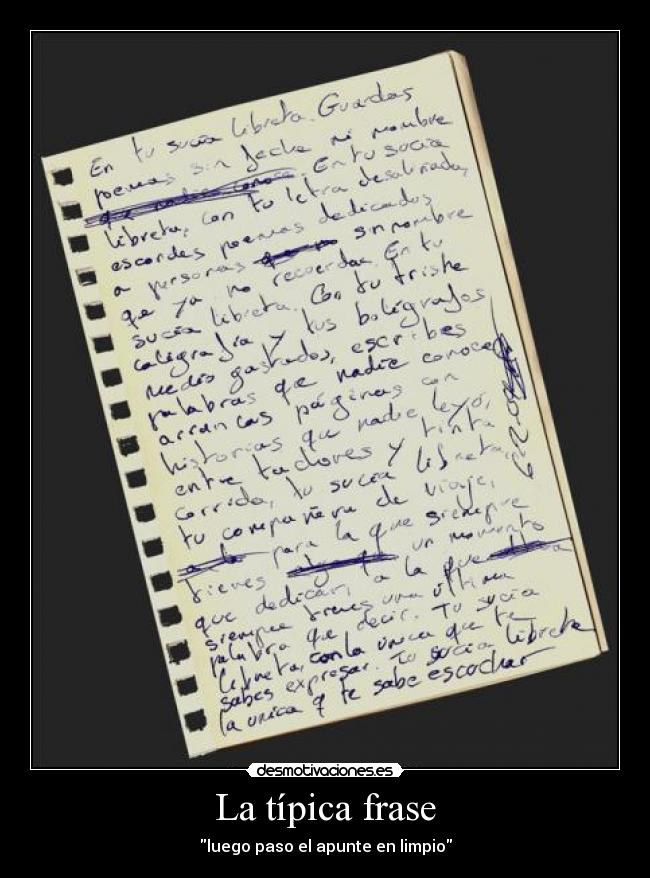 En tu sucia libreta. Guardas
poemas sin fecha ni nombre
que nadie conoce. En tu sucia
libreta, con tu letra desaliñada,
escondes poemas dedicados
a personas sin nombre
que ya no recuerdas. En tu
sucia libreta. Con tu triste
caligrafía y tus bolígrafos
medio gastados, escribes
palabras que nadie conoce
arrancas páginas con
historias que nadie leyó,
entre tachones y tinta
corrida, tu sucia libreta,
tu compañera de viaje,
para la que siempre
tienes un momento
que dedicar, a la que
siempre tienes una última
palabra que decir. Tu sucia
libreta, con la única que te
sabes expresar. Tu sucia libreta
la unica q te sabe escuchar
desmotivaciones.es
La típica frase
"luego paso el apunte en limpio"